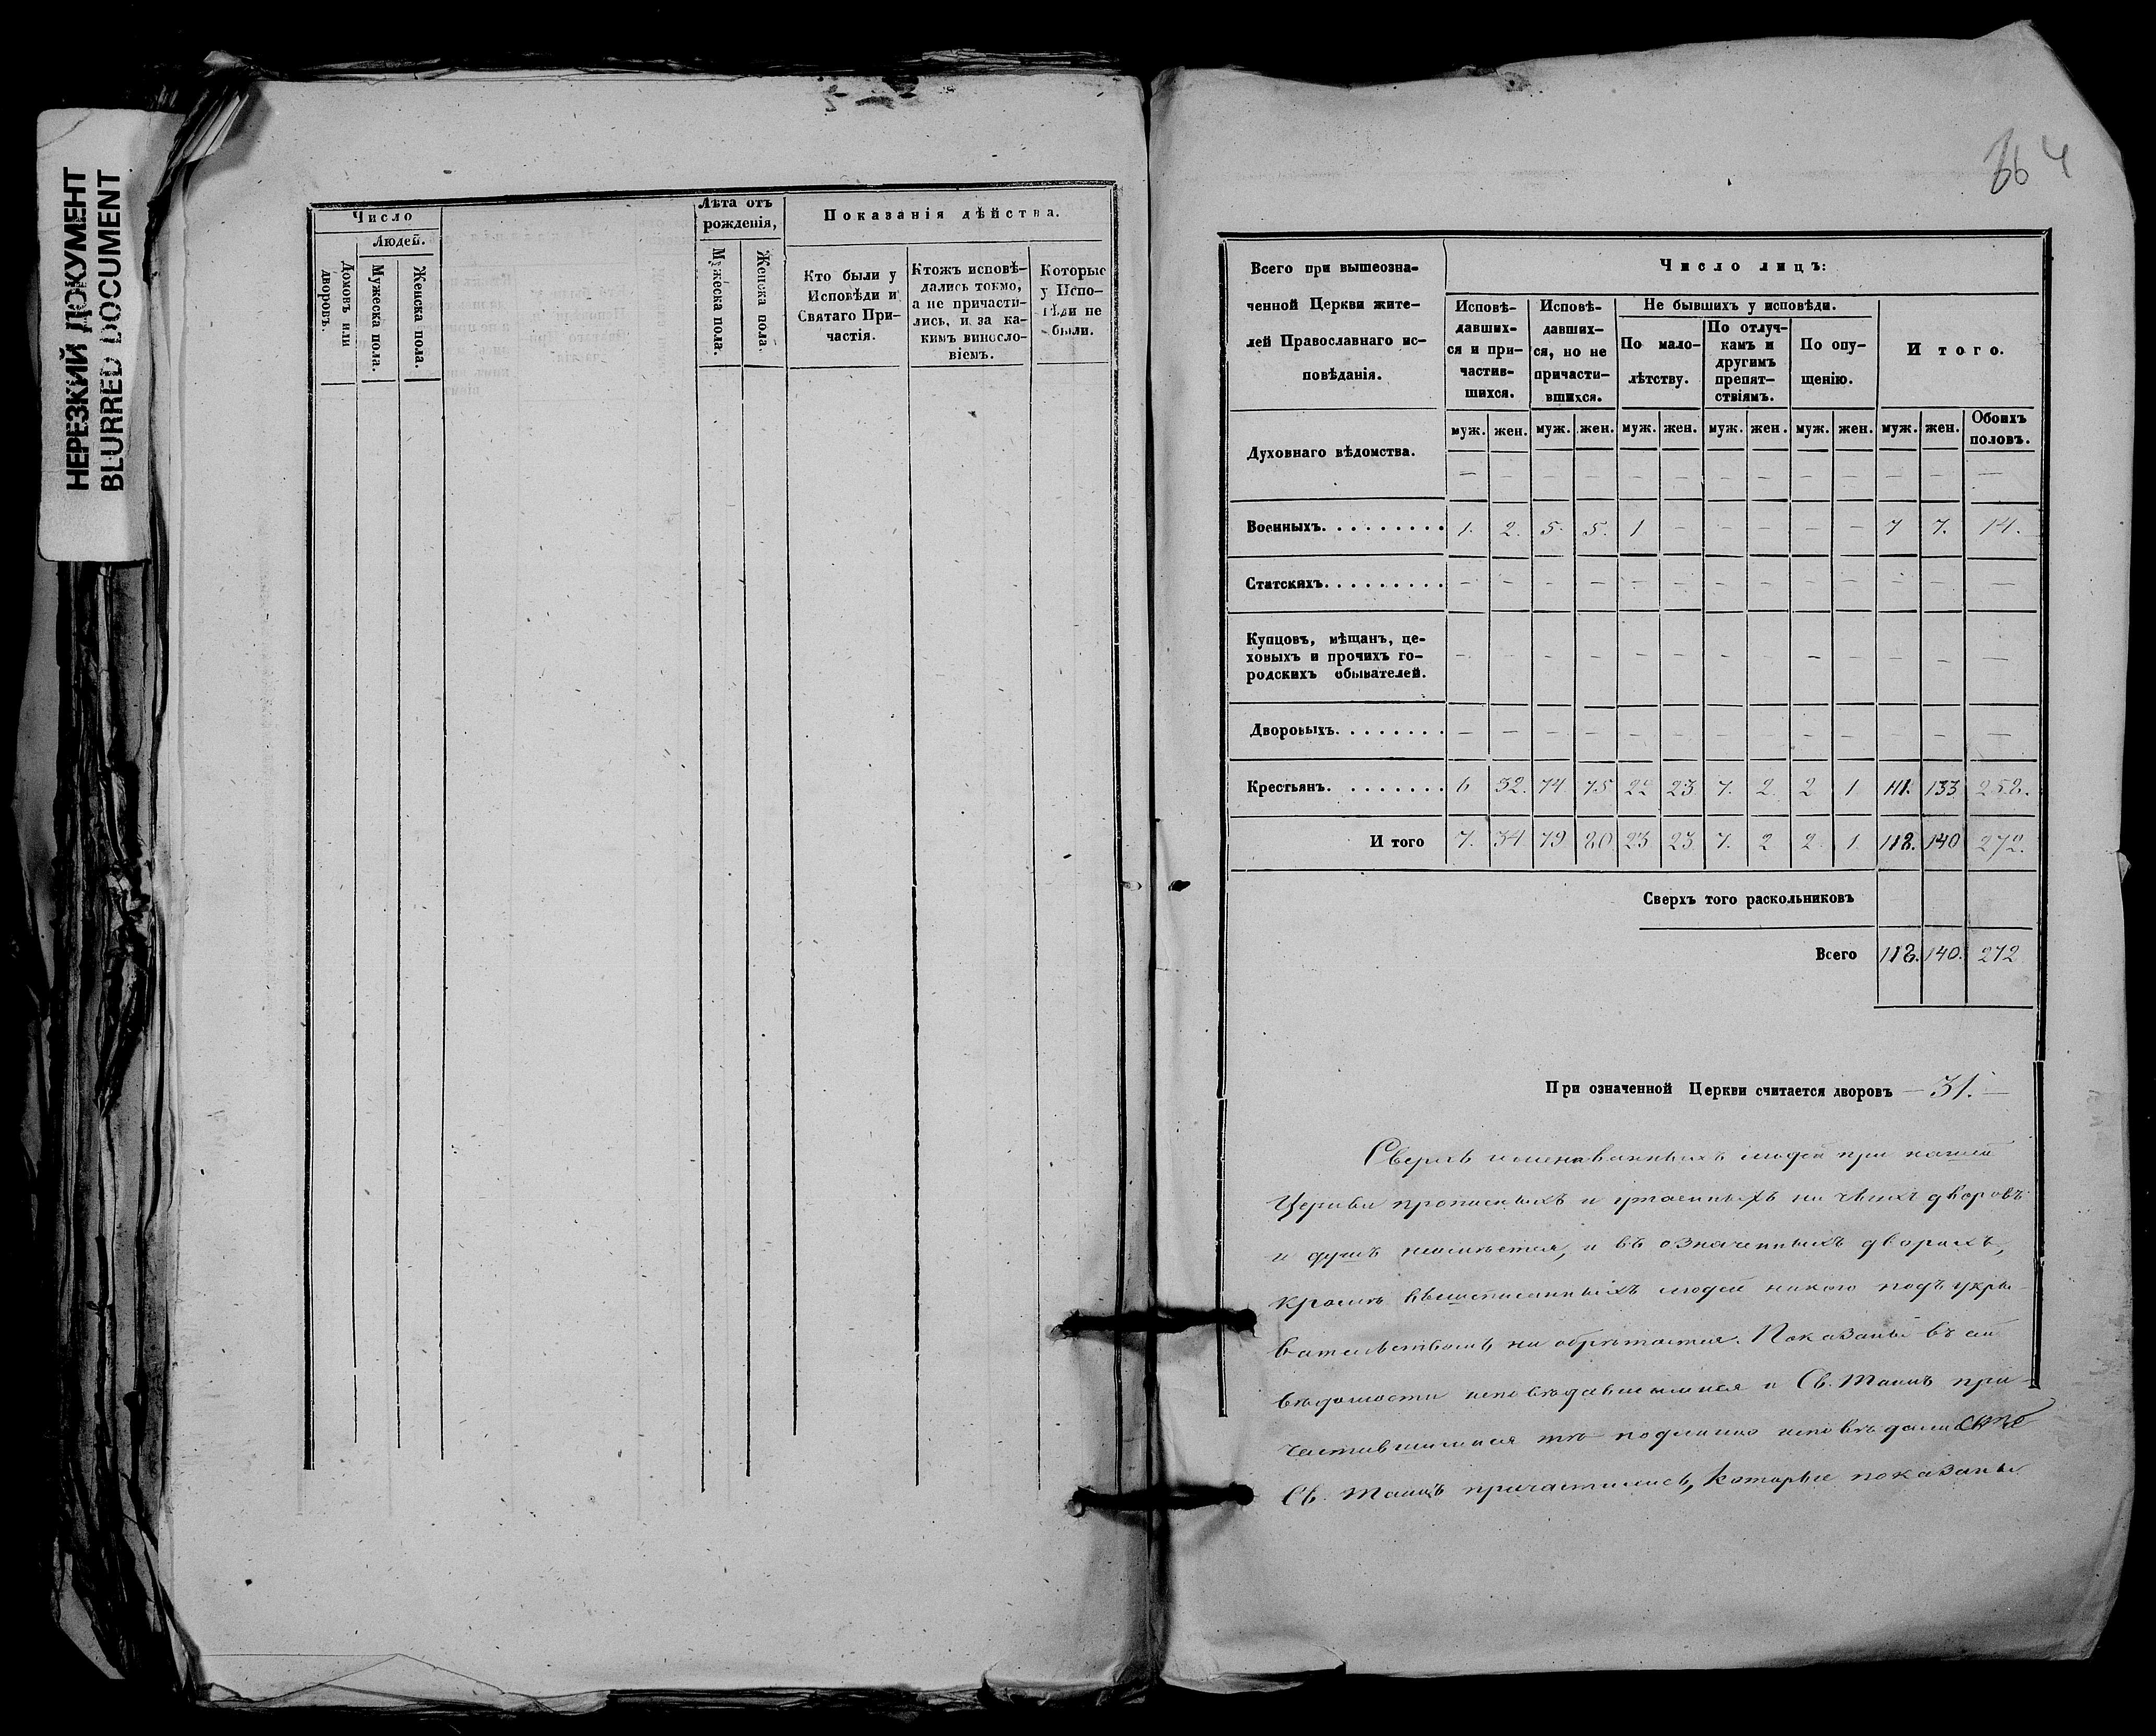 НЕРЕЗКИЙ ДОКУМЕНТ
BLURRED DOCUMENT
Число
Людей.
Домовъ или дворовъ.
Мужеска пола.
Женска пола.
Лѣта отъ рожденія,
Мужеска пола.
Женска пола.
Показанія дѣйства.
Кто были у
Исповѣди и
Святаго При-
частія.
Ктожъ исповѣ-
дались токмо,
а не причасти-
лись, и за ка-
кимъ винословіемъ.
Которые
у Испо-
вѣди не
были.
Всего при вышеозна-
ченной Церкви жите-
лей Православнаго ис-
повѣданія.
Число лицъ:
Исповѣ-
давших-
ся и при-
частив-
шихся.
Исповѣ-
давших-
ся, но не
причасти-
вшихся.
Не бывшихъ у исповѣди.
По мало-
лѣтству.
По отлуч-
камъ и
другимъ
препят-
ствіямъ.
По опу-
щенію.
Итого.
муж. жен. муж. жен. муж. жен. муж. жен. муж. жен. муж. жен. Обоихъ половъ.
Духовнаго вѣдомства. — — — — — — — — — — — — —
Военныхъ. 1. 2. 5. 5. 1 — — — — — 7 7. 14.
Статскихъ. — — — — — — — — — — — — —
Купцовъ, мѣщанъ, це-
ховыхъ и прочихъ го-
родскихъ обывателей. — — — — — — — — — — — — —
Дворовыхъ. — — — — — — — — — — — — —
Крестьянъ. 6 32. 74 75 22 23 7. 2 2 1 111. 133 258.
И того 7. 34 79 80 23 23 7. 2 2. 1. 118. 140 272.
Сверхъ того раскольниковъ
Всего 118. 140. 272
При означенной Церкви считается дворовъ — 31. —
Сверхъ именованныхъ людей при нашей
Церкви прописныхъ и утаенныхъ ни чьихъ дворовъ
и душъ неимѣется, и въ означенныхъ дворахъ,
кромѣ вышеписанныхъ людей никого подъ укры-
вательствомъ не обрѣтается. Показаны въ сей
вѣдомости исповѣдавшимися и Св. Таинъ при-
частившимися тѣ подлинно исповѣдались и
Св. Таинъ причастились, которые показаны